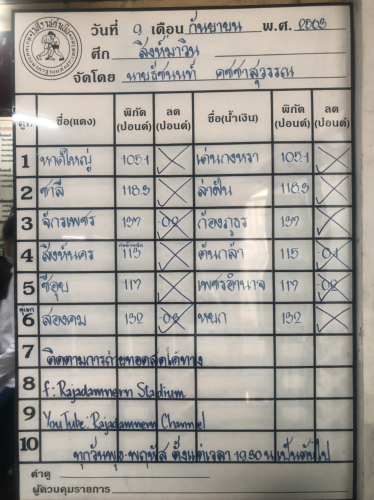 วันที่ 9 เดือน กันยายน พ.ศ. 2563
ศึก สิงห์มาวิน
จัดโดย นายธัชนนท์ คชชาสุวรรณ
คู่ ชื่อ(แดง) พิกัด (ปอนด์) ลด (ปอนด์) ชื่อ(น้ำเงิน) พิกัด (ปอนด์) ลด (ปอนด์)
1 หาดใหญ่ 105.1 เด่นกงหรา 105.1
2 ชาลี 118.3 ล่าฝัน 118.3
3 จักรเพชร 127 ก้องภูธร 127
4 สิงห์นคร 113 ต้นกล้า 115 0.1
5 ซีอุย 117 เพชรอำนาจ 117 0.2
6 สองคม 132 หยก 132
7 ติดตามการถ่ายทอดสดได้ทาง
8 f: Rajadamnern Stadium
9 YouTube: Rajadamnern Channel
10 ทุกวันพุธ-พฤหัส ตั้งแต่เวลา 19.30 น เป็นต้นไป
ค่าดู
ผู้ควบคุมรายการ